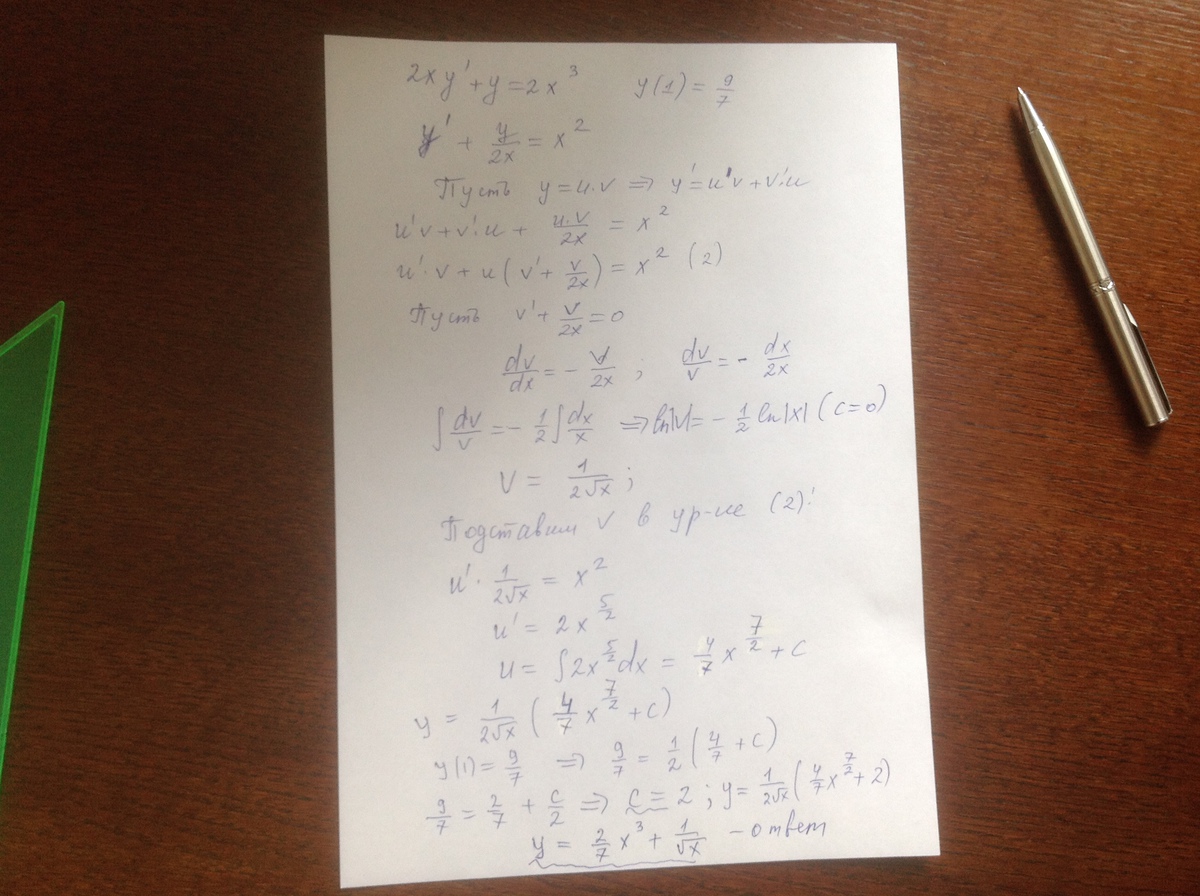 2xy' + y = 2x³ y(1) = 9/7
y' + y/2x = x²
Пусть y = u·v ⇒ y' = u'v + v'u
u'v + v'·u + u·v/2x = x²
u'·v + u(v' + v/2x) = x² (2)
Пусть v' + v/2x = 0
dv/dx = - v/2x ; dv/v = - dx/2x
∫dv/v = - 1/2 ∫dx/x ⇒ ln|v| = - 1/2 ln|x| (c=0)
V = 1/2√x ;
Подставим v в ур-ие (2):
u' · 1/2√x = x²
u' = 2x^(5/2)
u = ∫2x^(5/2)dx = 4/7 x^(7/2) + c
y = 1/2√x (4/7 x^(7/2) + c)
y(1) = 9/7 ⇒ 9/7 = 1/2 (4/7 + c)
9/7 = 2/7 + c/2 ⇒ c = 2 ; y = 1/2√x (4/7 x^(7/2) + 2)
y = 2/7 x³ + 1/√x - ответ